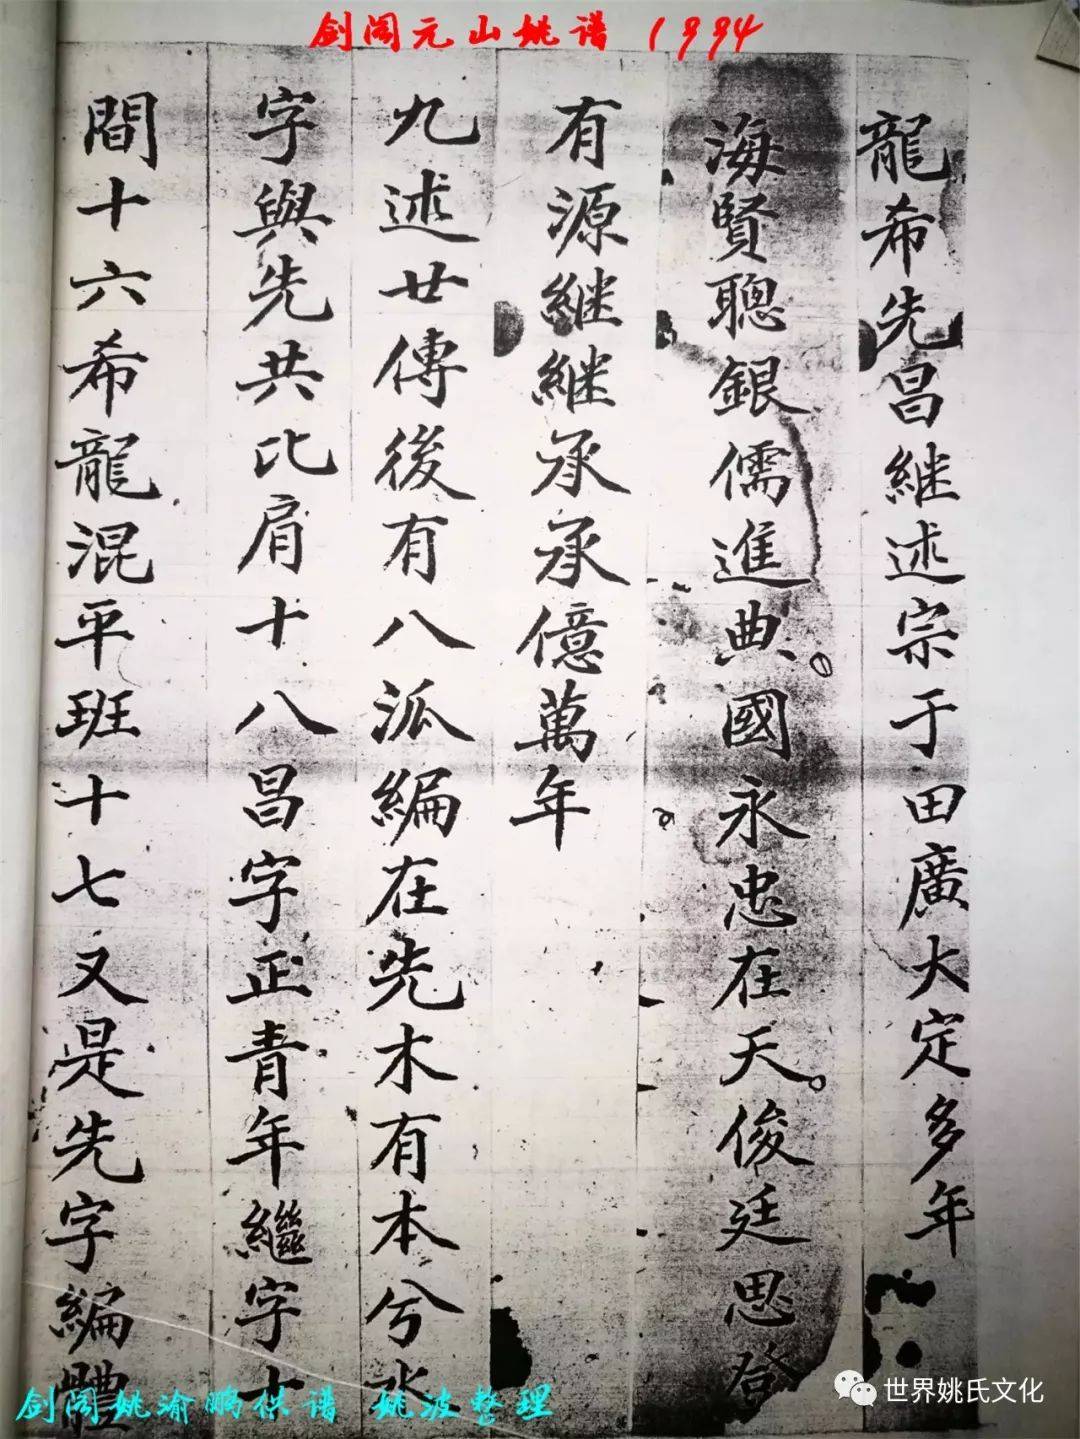 剑阁元山姚谱 1994
間十六希龍混平班十七又是先字編體
字與先共比肩十八昌字正青年繼字十
九述廿傳後有八泒編在先木有本兮水
有源继继承承億萬年
海賢聰銀儒進典。國永忠在天。俊廷思登
龍希先昌继述宗于田廣大定多年
剑阁姚渝鹏供谱 姚波整理
世界姚氏文化